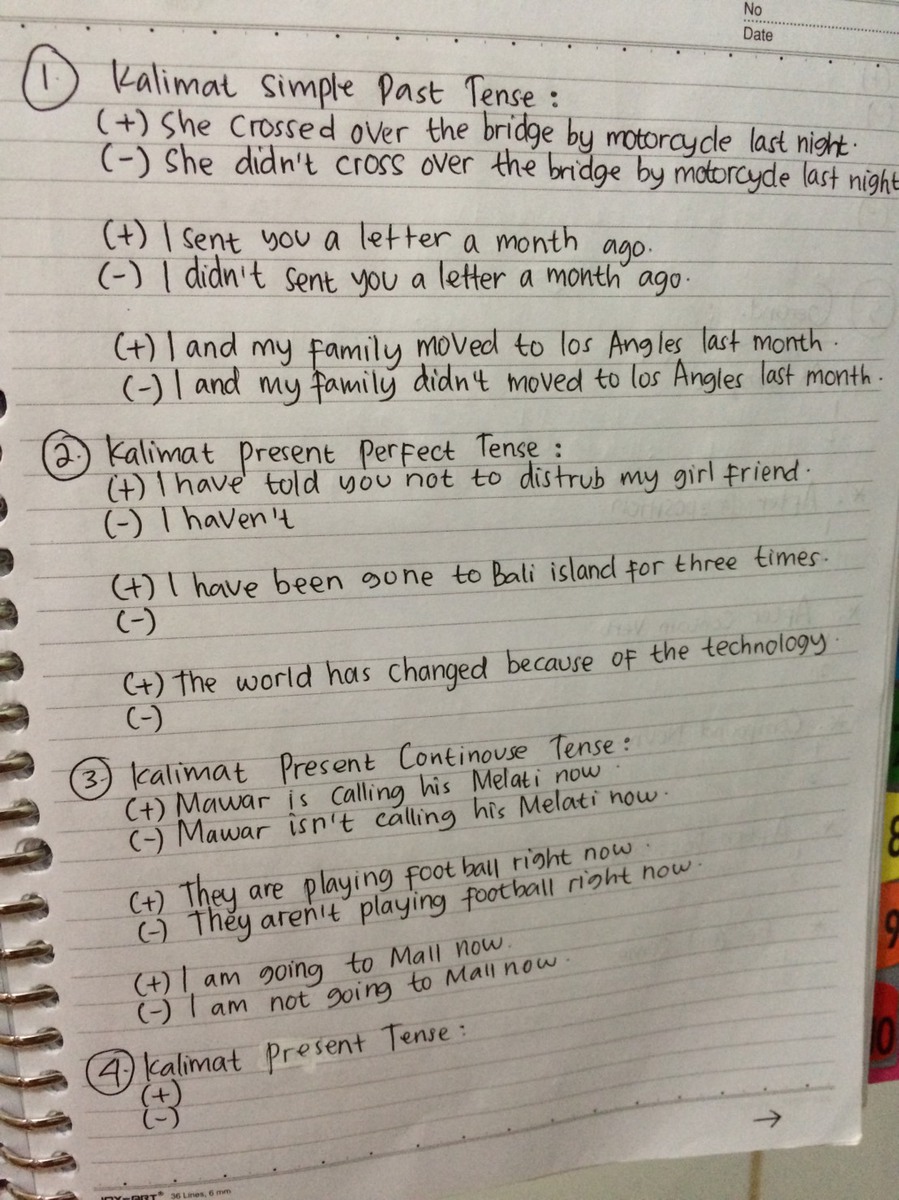 No
Date
1. Kalimat Simple Past Tense :
(+) She Crossed over the bridge by motorcycle last night.
(-) She didn't cross over the bridge by motorcycle last night
(+) I sent you a letter a month ago.
(-) I didn't sent you a letter a month ago.
(+) I and my family moved to los Angles last month.
(-) I and my family didn't moved to los Angles last month.
2. Kalimat present perfect Tense :
(+) I have told you not to distrub my girl friend.
(-) I haven't
(+) I have been gone to Bali island for three times.
(-)
(+) The world has changed because of the technology.
(-)
3. Kalimat Present Continouse Tense :
(+) Mawar is calling his Melati now.
(-) Mawar isn't calling his Melati now.
(+) They are playing football right now.
(-) They aren't playing football right now.
(+) I am going to Mall now.
(-) I am not going to Mall now.
4. Kalimat present Tense :
(+)
(-)
→
36 Lines, 6 mm
8
9
10